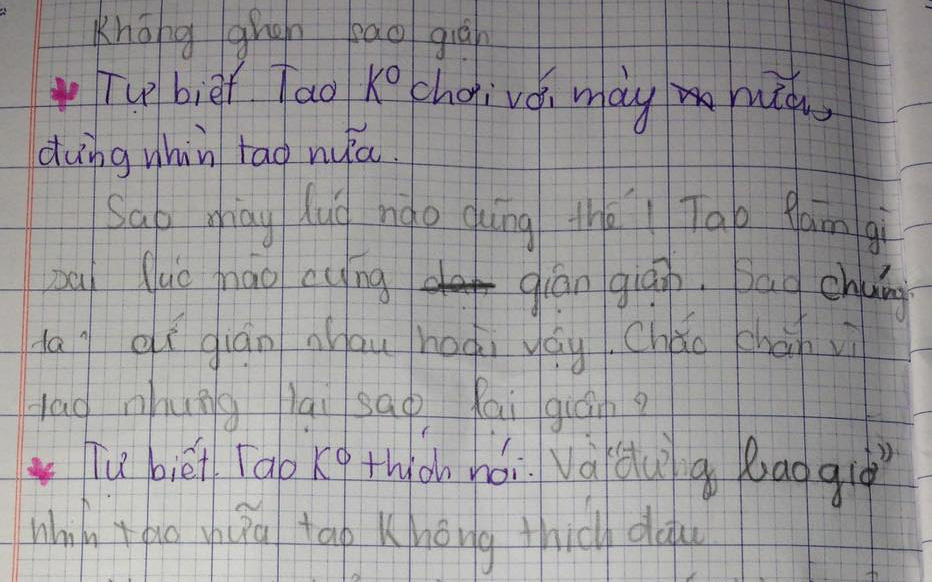 Không ghen sao giận
* Tự biết. Tao K° chơi với mày nữa,
đừng nhìn tao nữa.
Sao mày lúc nào cũng thế! Tao làm gì
sai lúc nào cũng giận giận. Sao chúng
ta cứ giận nhau hoài vậy. Chắc chắn vì
tao nhưng tại sao lại giận?
* Tự biết. Tao K° thích nói. Và "đừng bao giờ"
nhìn tao nữa tao Không thích đâu